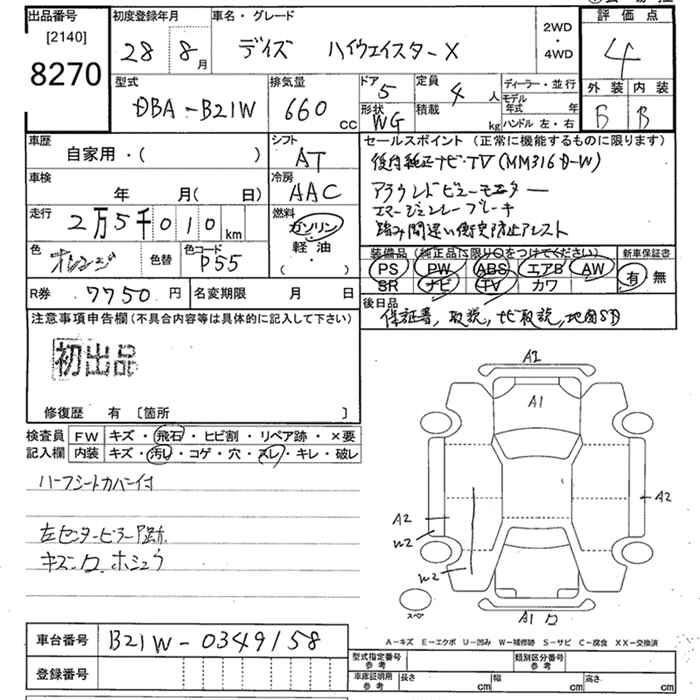 出品番号
[2140]
8270
初度登録年月
28 8月
車名・グレード
デイズ ハイウェイスターX
2WD
・
4WD
評価点
4
型式
DBA-B21W
排気量
660 cc
ドア
5
定員
4人
形状
WG
積載
kg
ディーラー・並行
モデル年式 年
ハンドル 左・右
外装 内装
B B
車歴
自家用・( )
シフト
AT
車検
年 月( 日)
冷房
AAC
走行
2万5千010km
燃料
ガソリン
・
軽油
( )
色
オレンジ
色替
色コード
P55
R券 7750円
名変期限 月 日
セールスポイント (正常に機能するものに限ります)
後付純正ナビ・TV(MM316D-W)
アラウンドビューモニター
エマージェンシーブレーキ
踏み間違い衝突防止アシスト
装備品 (純正品に限り○をつけてください)
PS PW ABS エアB AW
SR ナビ TV カワ
新車保証書
有 無
後日品
保証書, 取説, ナビ取説, 地図SD
注意事項申告欄(不具合内容等は具体的に記入して下さい)
初出品
修復歴 有 [箇所 ]
検査員 FW キズ・飛石・ヒビ割・リペア跡・×要
記入欄 内装 キズ・汚レ・コゲ・穴・スレ・キレ・破レ
ハーフシートカバー付
左センターピラー
キズ
ホシュウ
A2
A1
A2
A2
W2
W2
スペア
A1
A-キズ E-エクボ U-凹み W-補修跡 S-サビ C-腐食 XX-交換済
車台番号 B21W-0349158
登録番号
型式指定番号
参考
類別区分番号
参考
車庫証明用
参考
長さ cm
幅 cm
高さ cm